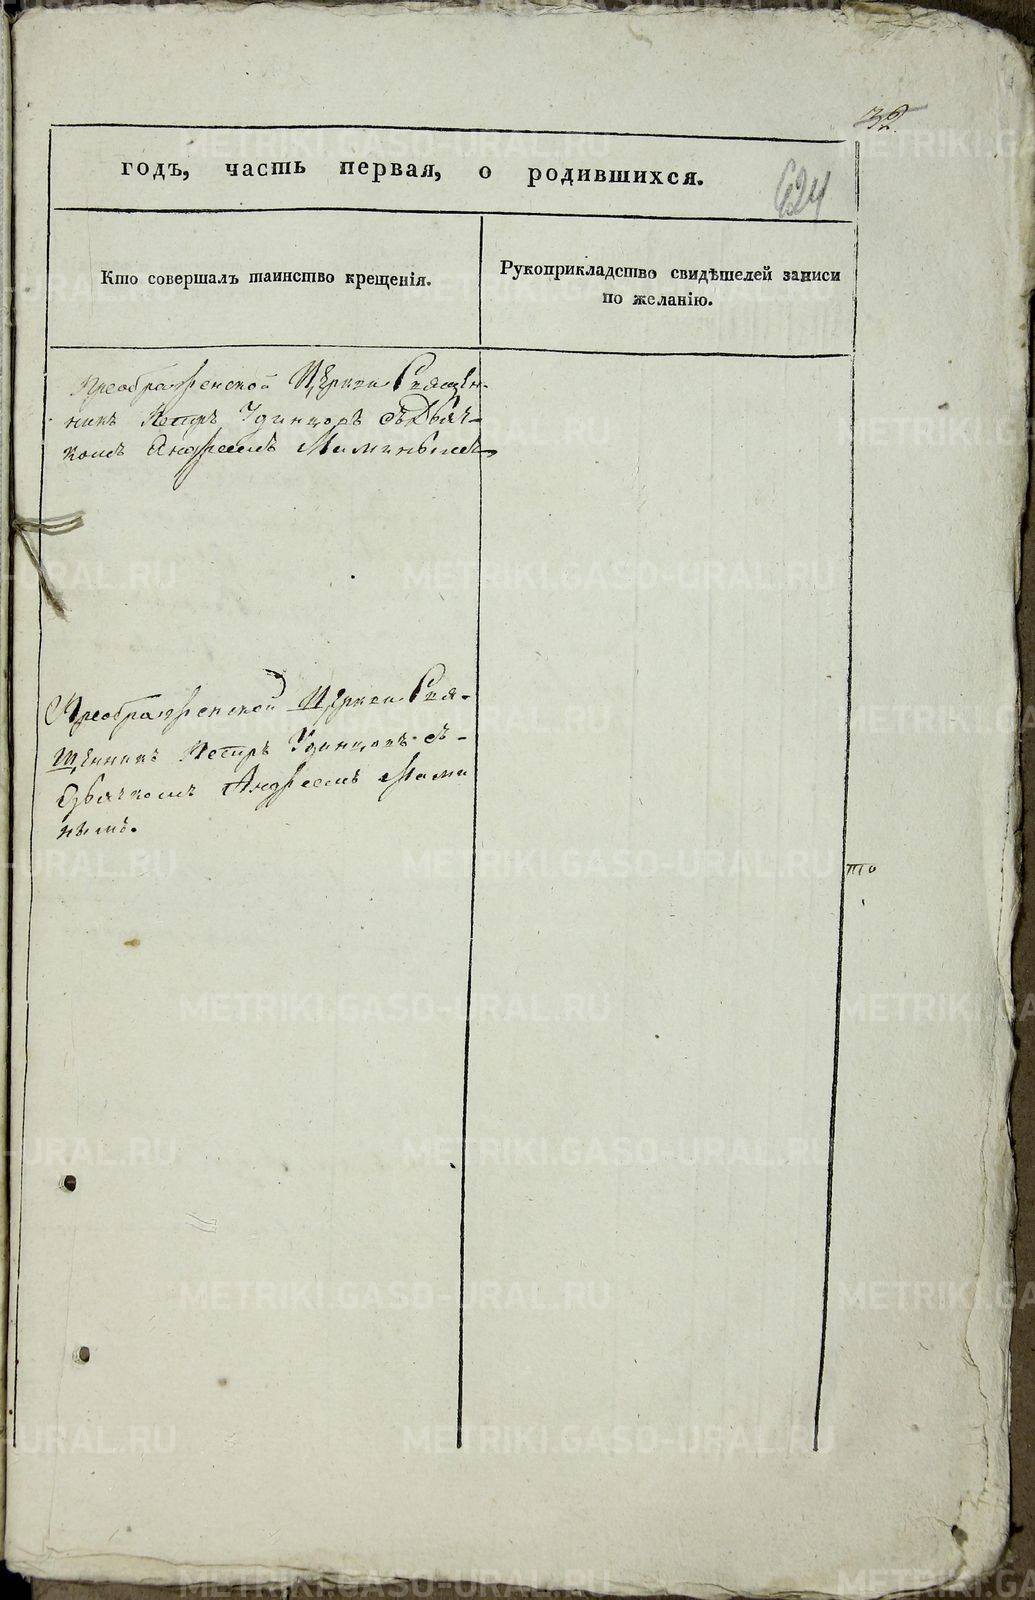 32
годъ, часть первая, о родившихся.
624
Кто совершалъ таинство крещенія.
Рукоприкладство свидѣтелей записи
по желанію.
Преображенской Церкви Священ-
никъ Петръ Удинцовъ съ Дьяч-
комъ Андреемъ Маминымъ
Преображенской Церкви Свя-
щенникъ Петръ Удинцовъ съ-
Дьячкомъ Андреемъ Мами
нымъ.
METRIKI.GASO-URAL.RU